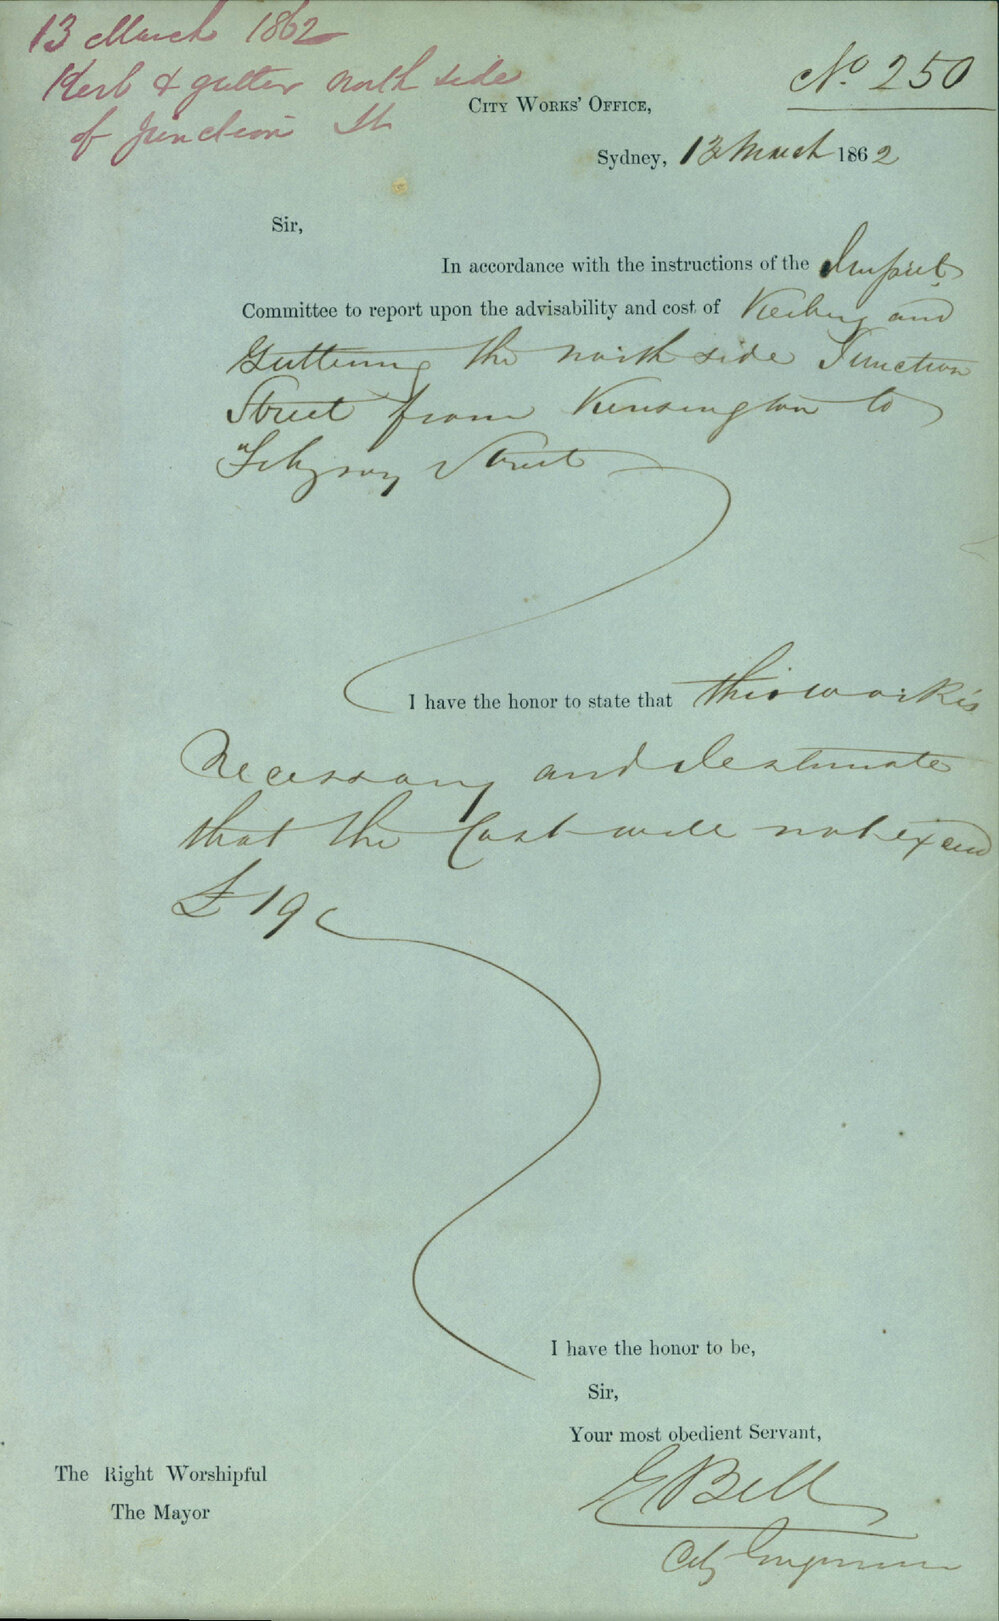 13 March 1862
Kerb & gutter north side
of Junction St
No 250
CITY WORKS' OFFICE,
Sydney, 13 March 1862
Sir,
In accordance with the instructions of the Improt
Committee to report upon the advisability and cost of Kerbing and
Guttering the north side Junction
Street from Kensington to
Fitzroy Street
I have the honor to state that this work is
necessary and I estimate
that the Cost will not exceed
£19
I have the honor to be,
Sir,
Your most obedient Servant,
The Right Worshipful
The Mayor
E Bell
City Engineer